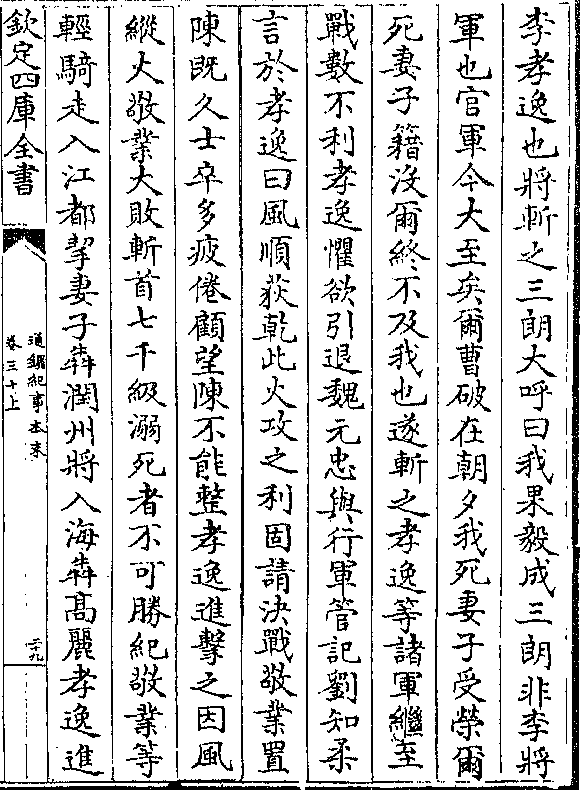 李孝逸也將斬之三朗大呼曰我果毅成三朗非李將
軍也官軍今大至矣爾曹破在朝夕我死妻子受榮爾
死妻子籍没爾終不及我也遂斬之孝逸等諸軍繼至
戰數不利孝逸懼欲引退魏元忠與行軍管記劉知柔
言於孝逸曰風順荻乾此火攻之利固請決戰敬業置
陳既久士卒多疲倦顧望陳不能整孝逸進擊之因風
縱火敬業大敗斬首七千級溺死者不可勝紀敬業等
輕騎走入江都挈妻子犇潤州將入海犇髙麗孝逸進
欽定四庫全書
通鑑紀事本末
卷三十上
二十九